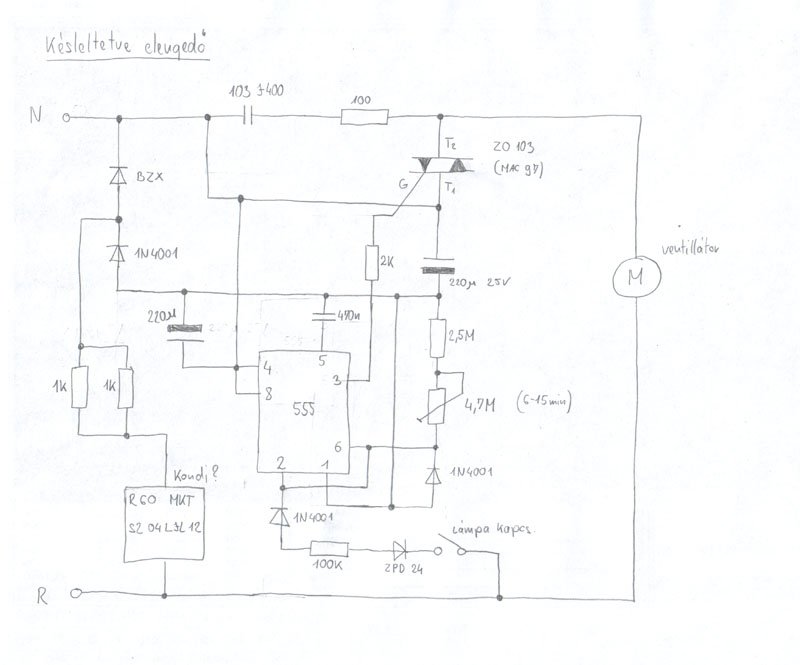 Késleltetve elengedő
103 J400
100
N
T2
ZO 103
(MAC 97)
G
T1
BZX
1N4001
2K
220µ 25V
ventillátor
M
220µ
470n
2,5M
5
4
3
8
555
1K
1K
4,7M
(6-15min)
6
2
1
1N4001
Kondi?
R60 MKT
1N4001
lámpa kapcs.
100K
ZPD 24
R